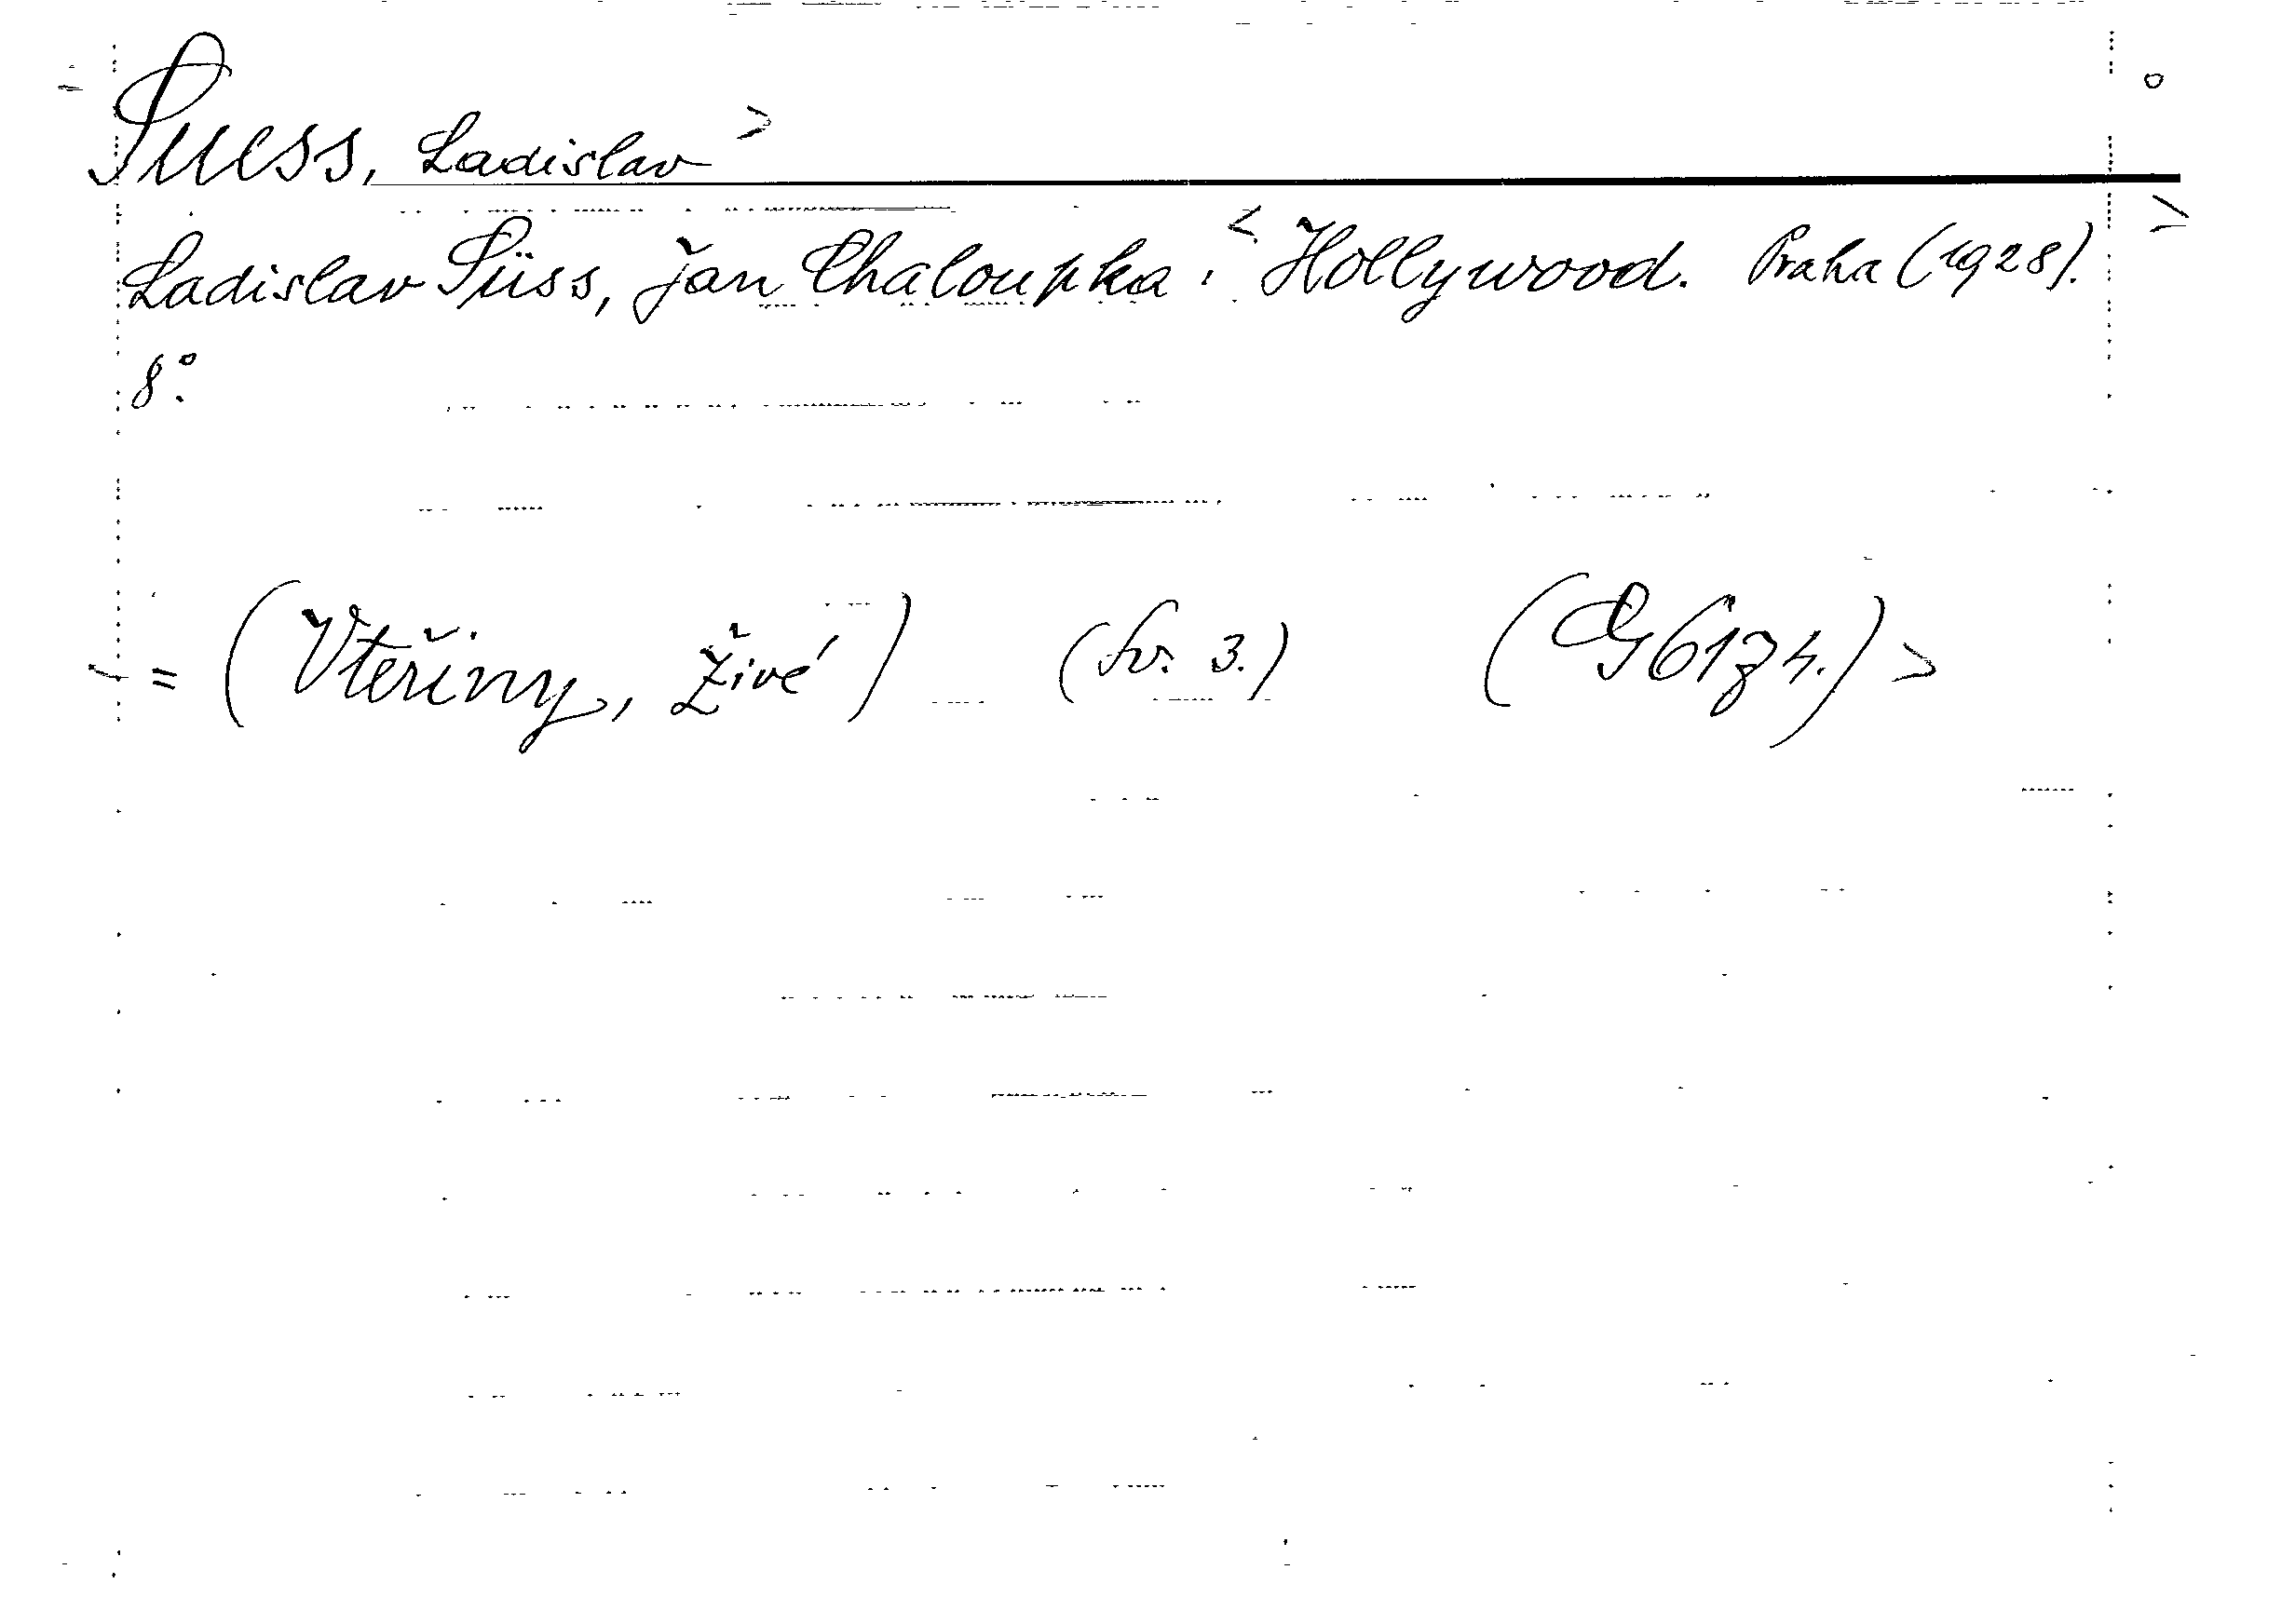 Suess, Ladislav >
Ladislav Süss, Jan Chaloupka: < Hollywood. Praha (1928). >
8°.
= (Vteřiny, Živé) (Sv. 3.) >